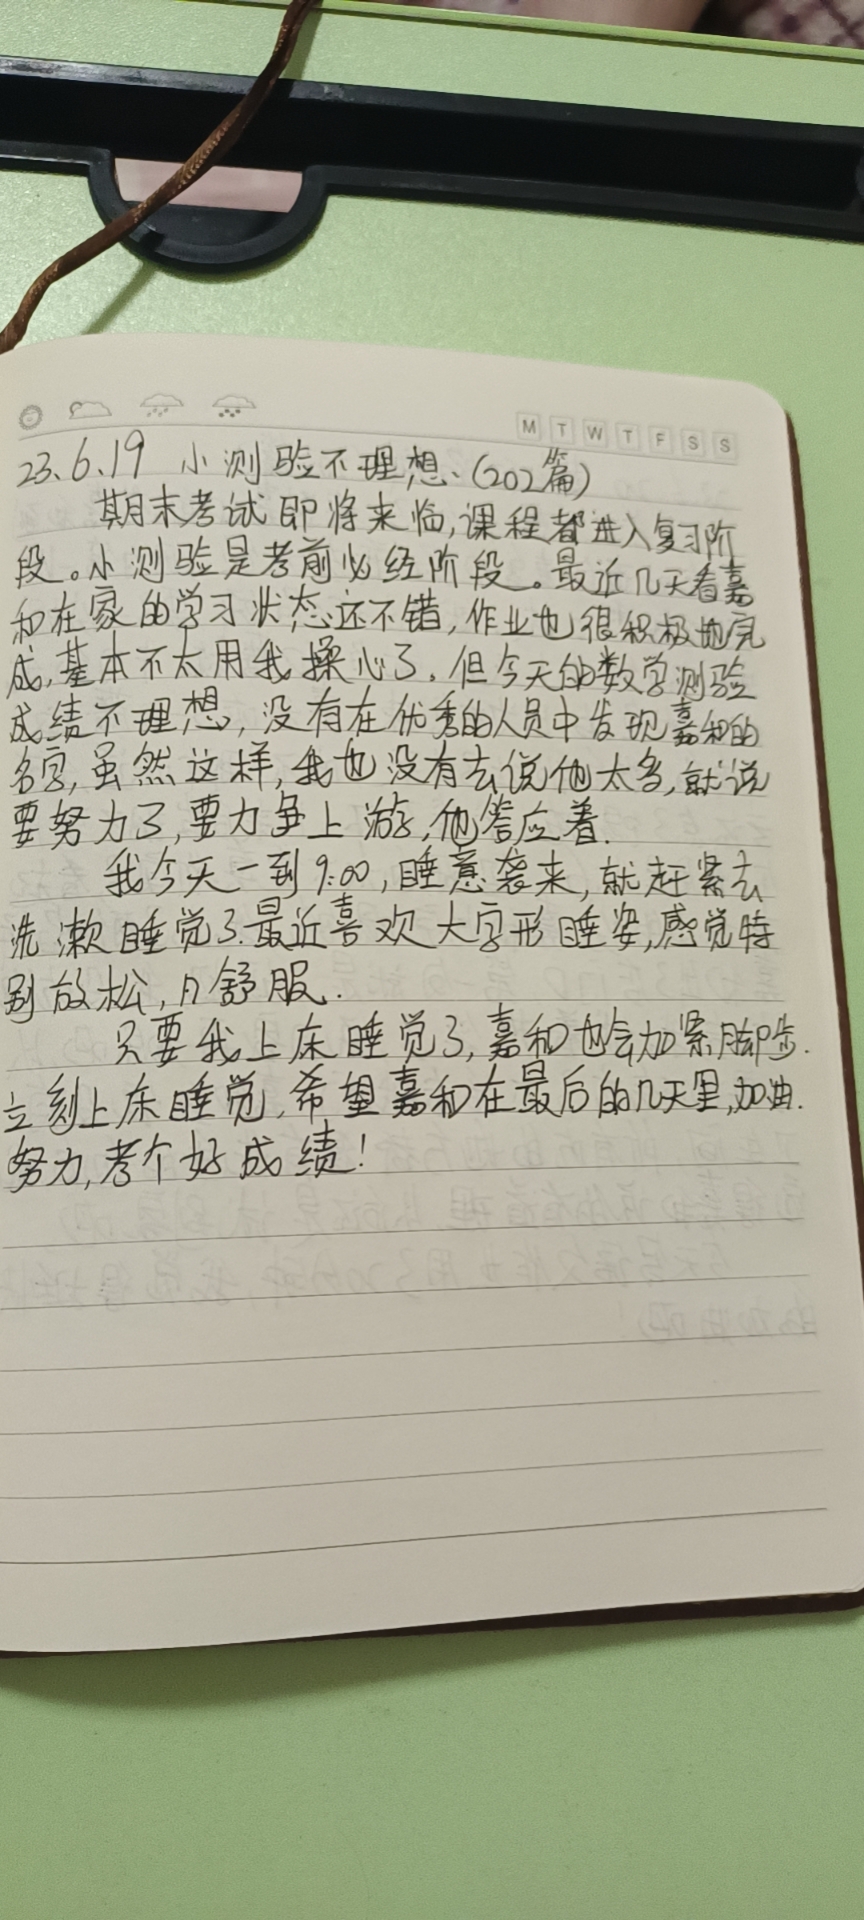 M T W T F S S
23.6.19 小测验不理想、(202篇)
期末考试即将来临,课程都进入复习阶
段。小测验是考前必经阶段。最近几天看嘉
和在家的学习状态还不错,作业也很积极地完
成,基本不太用我操心了.但今天的数学测验
成绩不理想,没有在优秀的人员中发现嘉和的
名字,虽然这样,我也没有去说他太多,就说
要努力了,要力争上游,他答应着.
我今天一到9:00,睡意袭来,就赶紧去
洗漱睡觉了.最近喜欢大字形睡姿,感觉特
别放松,舒服.
只要我上床睡觉了,嘉和也会加紧脚步.
立刻上床睡觉.希望嘉和在最后的几天里,加油.
努力,考个好成绩!